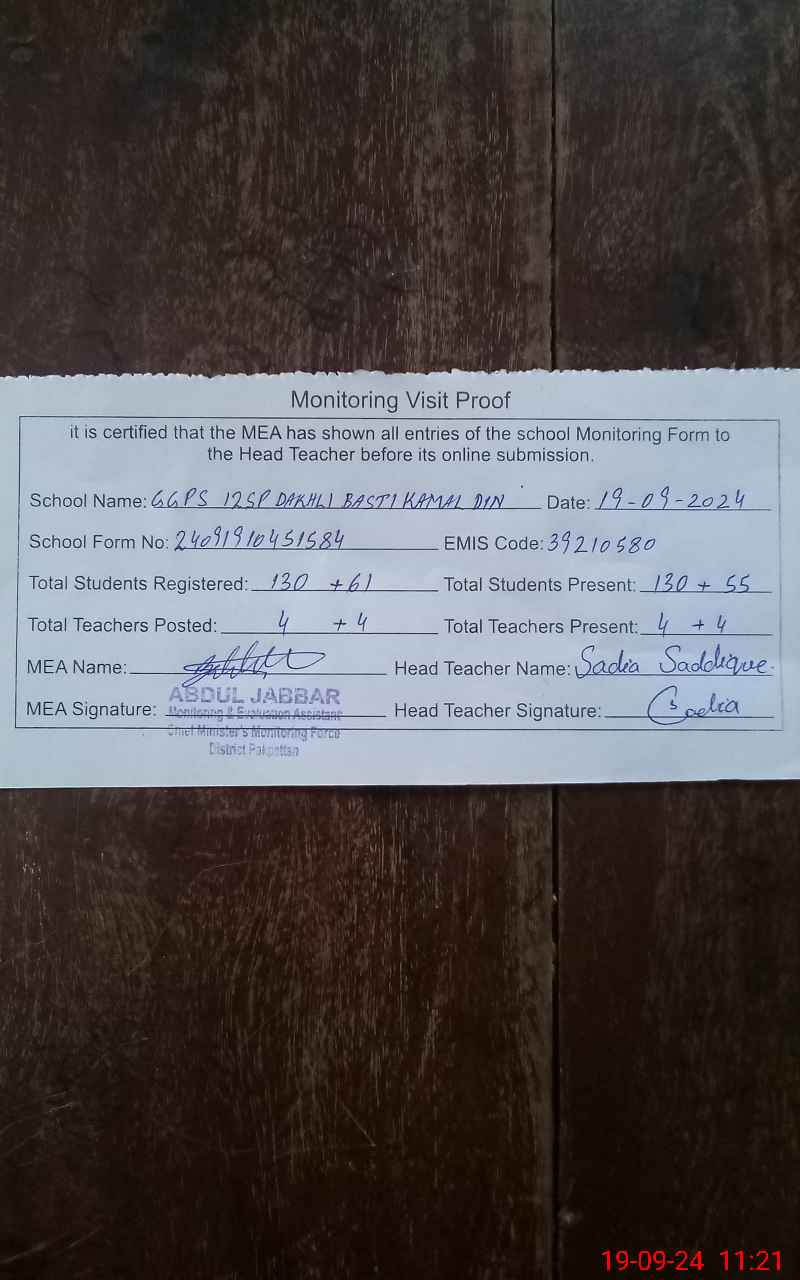 Monitoring Visit Proof
it is certified that the MEA has shown all entries of the school Monitoring Form to
the Head Teacher before its online submission.
School Name: GGPS 12SP DAKHLI BASTI KAMAL DIN Date: 19-09-2024
School Form No: 24091910451584 EMIS Code: 39210580
Total Students Registered: 130 +61 Total Students Present: 130 + 55
Total Teachers Posted: 4 + 4 Total Teachers Present: 4 + 4
MEA Name: Head Teacher Name: Sadia Saddique.
ABDUL JABBAR
MEA Signature: Monitoring & Evaluation Assistant Head Teacher Signature: Sadia
Chief Minister's Monitoring Force
District Pakpattan
19-09-24 11:21